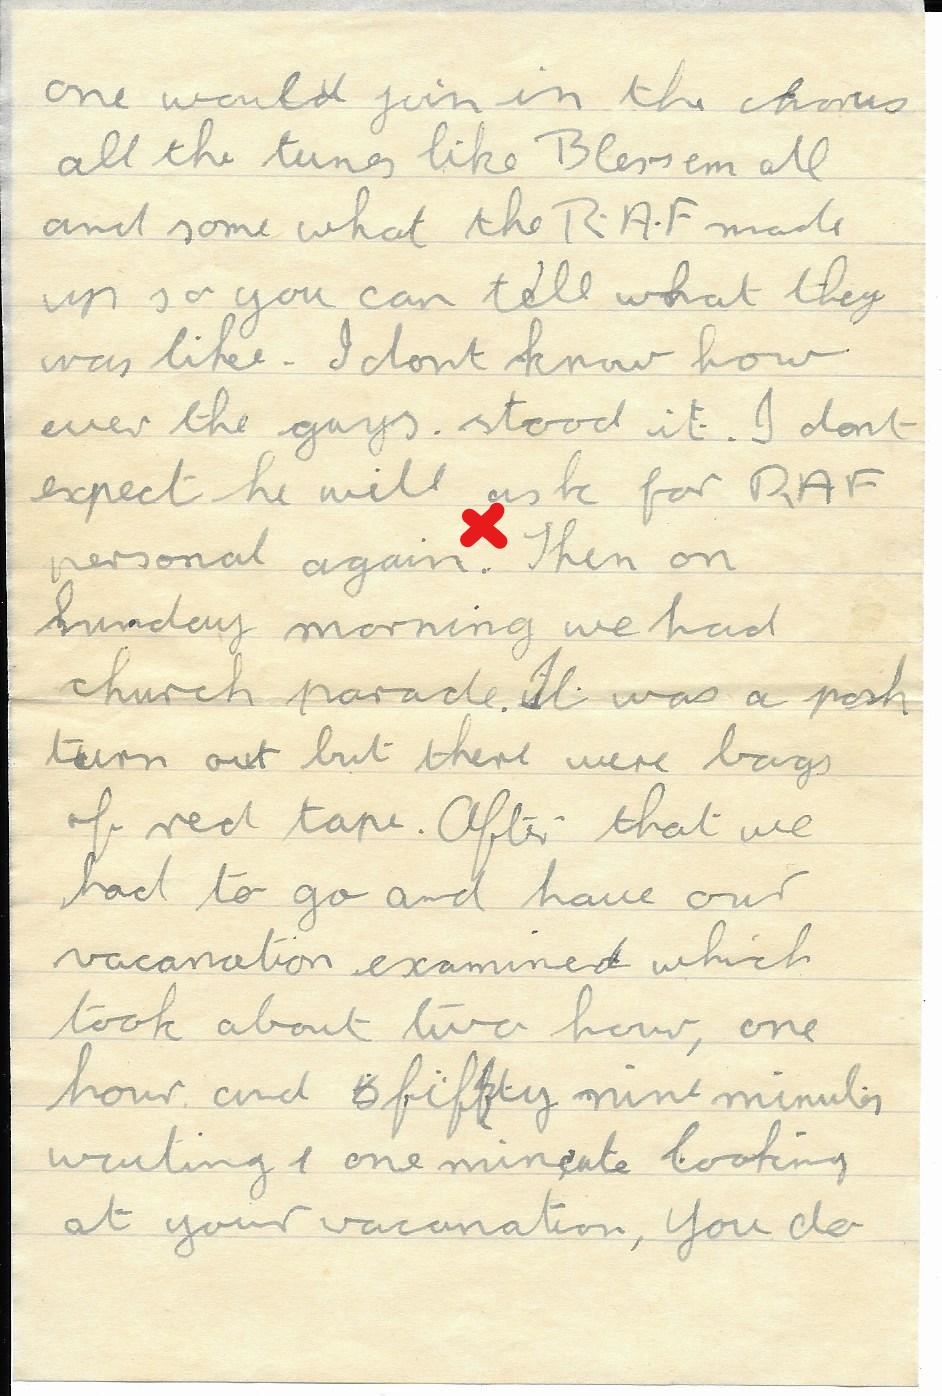 one would join in the chorus
all the tunes like Bless em all
and some what the R.A.F made
up so you can tell what they
was like - I dont know how
ever the guys. stood it. I dont
expect he will ask for RAF
personal again. Then on
Sunday morning we had
church parade. It was a posh
turn out but there were bags
of red tape. After that we
had to go and have our
vacanation examined which
took about two hour, one
hour and fifty nine minutes
waiting & one minute looking
at your vacanation, You do